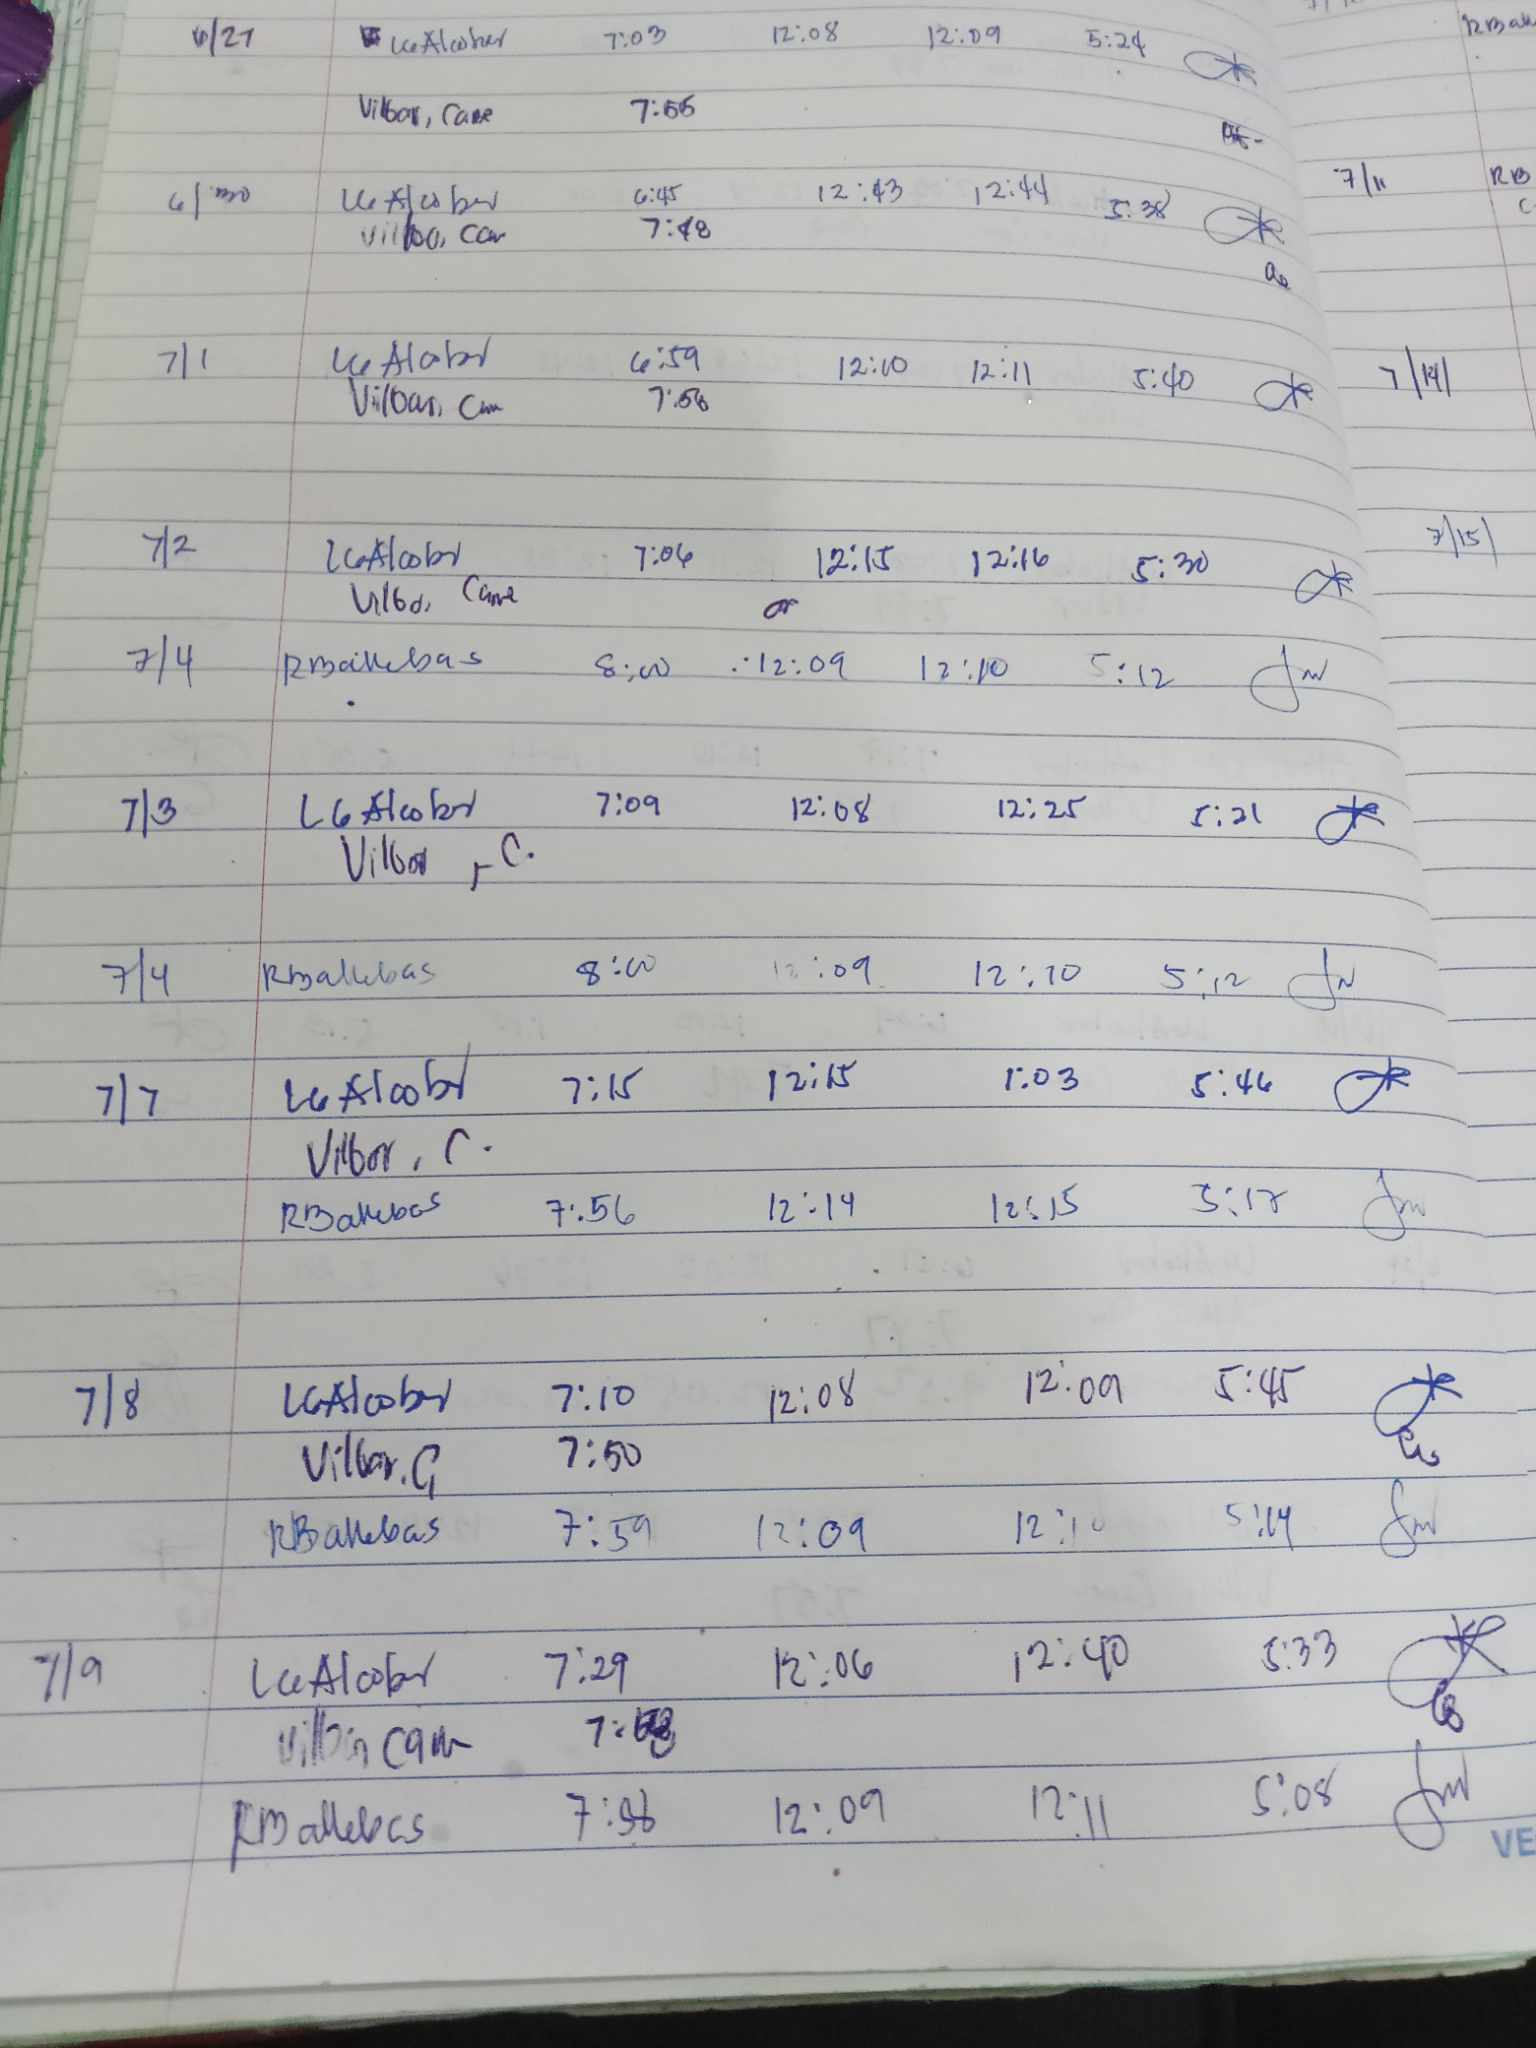 6/27 LGAlcober 7:03 12:08 12:09 5:24
Vilbar, Cane 7:55
6/30 LGAlcober 6:45 12:43 12:44 5:38
Vilbar, Can 7:48
7/1 LGAlcober 6:59 12:10 12:11 5:40
Vilbar, Cam 7:56
7/2 LGAlcober 7:06 12:15 12:16 5:30
Vilbar, Cane
7/4 RBallebas 8:00 12:09 12:10 5:12
7/3 LGAlcober 7:09 12:08 12:25 5:21
Vilbar, C.
7/4 RBallebas 8:00 12:09 12:10 5:12
7/7 LGAlcober 7:15 12:15 1:03 5:46
Vilbar, C.
RBallebas 7:56 12:14 12:15 5:17
7/8 LGAlcober 7:10 12:08 12:09 5:45
Vilbar, C 7:50
RBallebas 7:59 12:09 12:10 5:14
7/9 LGAlcober 7:29 12:06 12:40 5:33
Vilbar, Cam
RBallebas 7:56 12:09 12:11 5:08
7/11 RB
7/14
7/15
VE